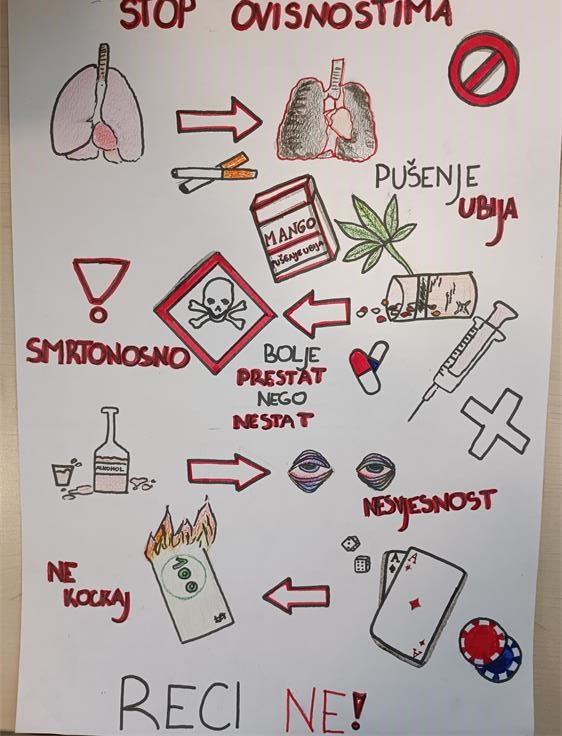 STOP OVISNOSTIMA
PUŠENJE
UBIJA
MANGO
PUŠENJE UBIJA
SMRTONOSNO
BOLJE
PRESTAT
NEGO
NESTAT
ALKOHOL
NESVJESNOST
NE
KOCKAJ
100
A
A
A
RECI NE!